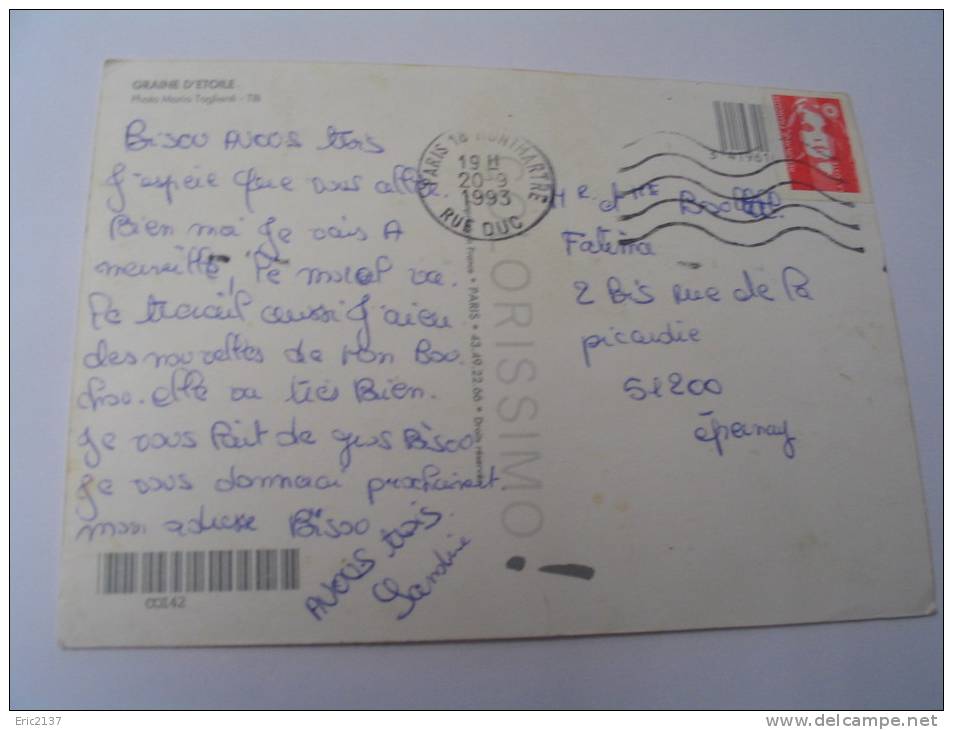 GRAINE D'ETOILE
Photo Marco Taglianti - TBI
Bisou AVCOS trois
J'espeie que vous aller.
Bien moi je vais A
merveille, le moral va.
le travail aussi j'aieu
des nouvelles de mon Bou.
chou. elle va très Bien.
Je vous fait de gros Bisoo
Je vous donnerai prochainent.
mon adresse Bisoo
AVOUS trois.
Sandrine
00142
PARIS 18 MONTMARTRE
19 H
20-9
1993
RUE DUC
France • PARIS • 43.49.22.66 • Droits réservés
ORISSIMO !
Mr. Mme
Fatima
2 Bis rue de la
picardie
51200
épernay
Eric2137
www.delcampe.net